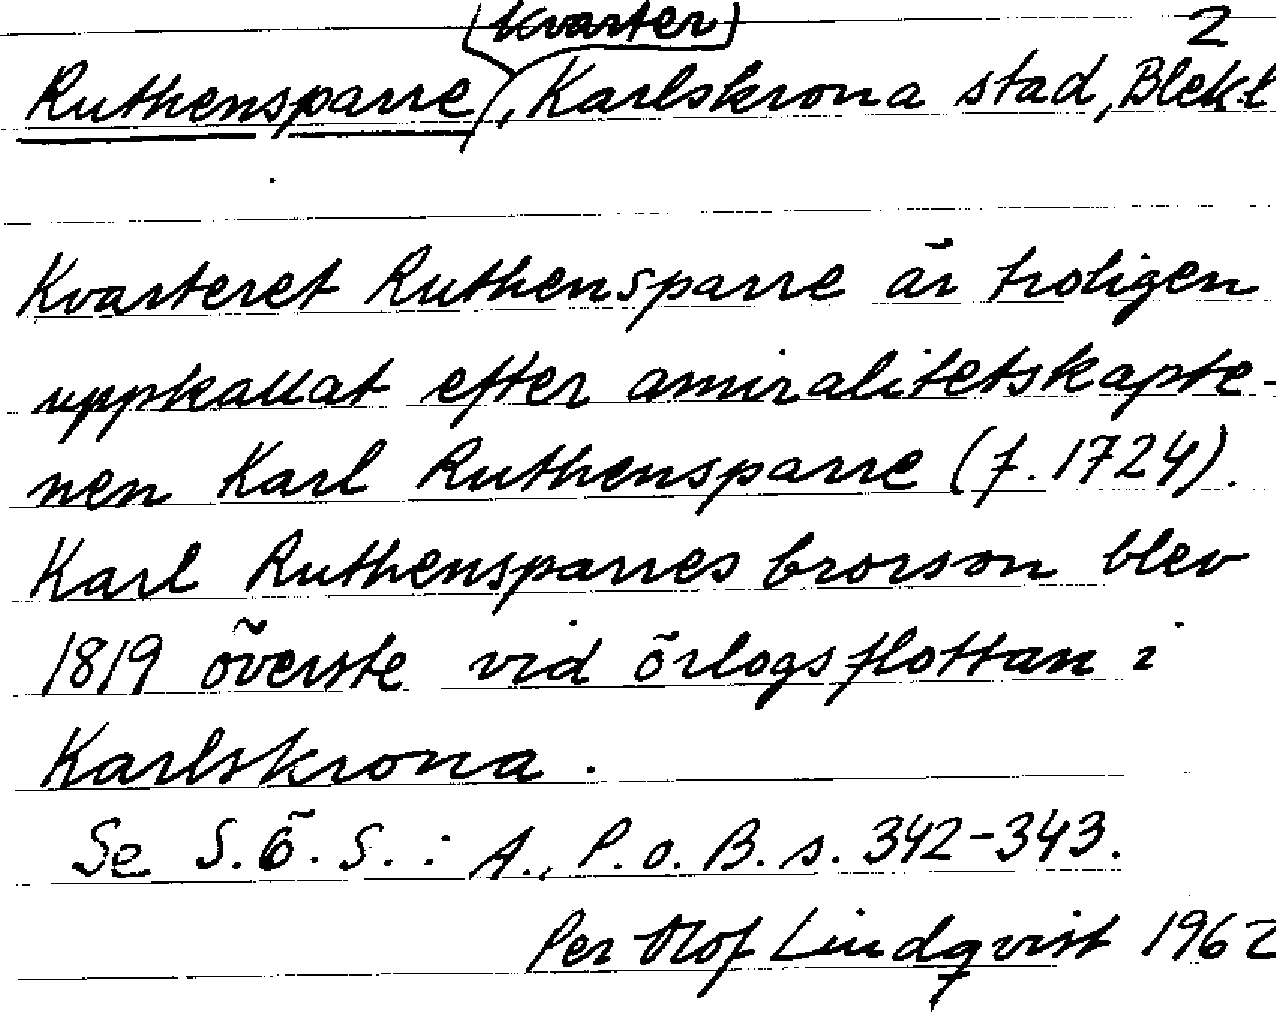 (Kvarter) 2
Ruthensparre, Karlskrona stad, Blekl
Kvarteret Ruthensparre är troligen
uppkallat efter amiralitetskapte-
nen Karl Ruthensparre (f. 1724).
Karl Ruthensparres brorson blev
1819 överste vid örlogsflottan i
Karlskrona.
Se S.Ö.S.: A., P.o.B. s. 342-343.
Per Olof Lindqvist 1962